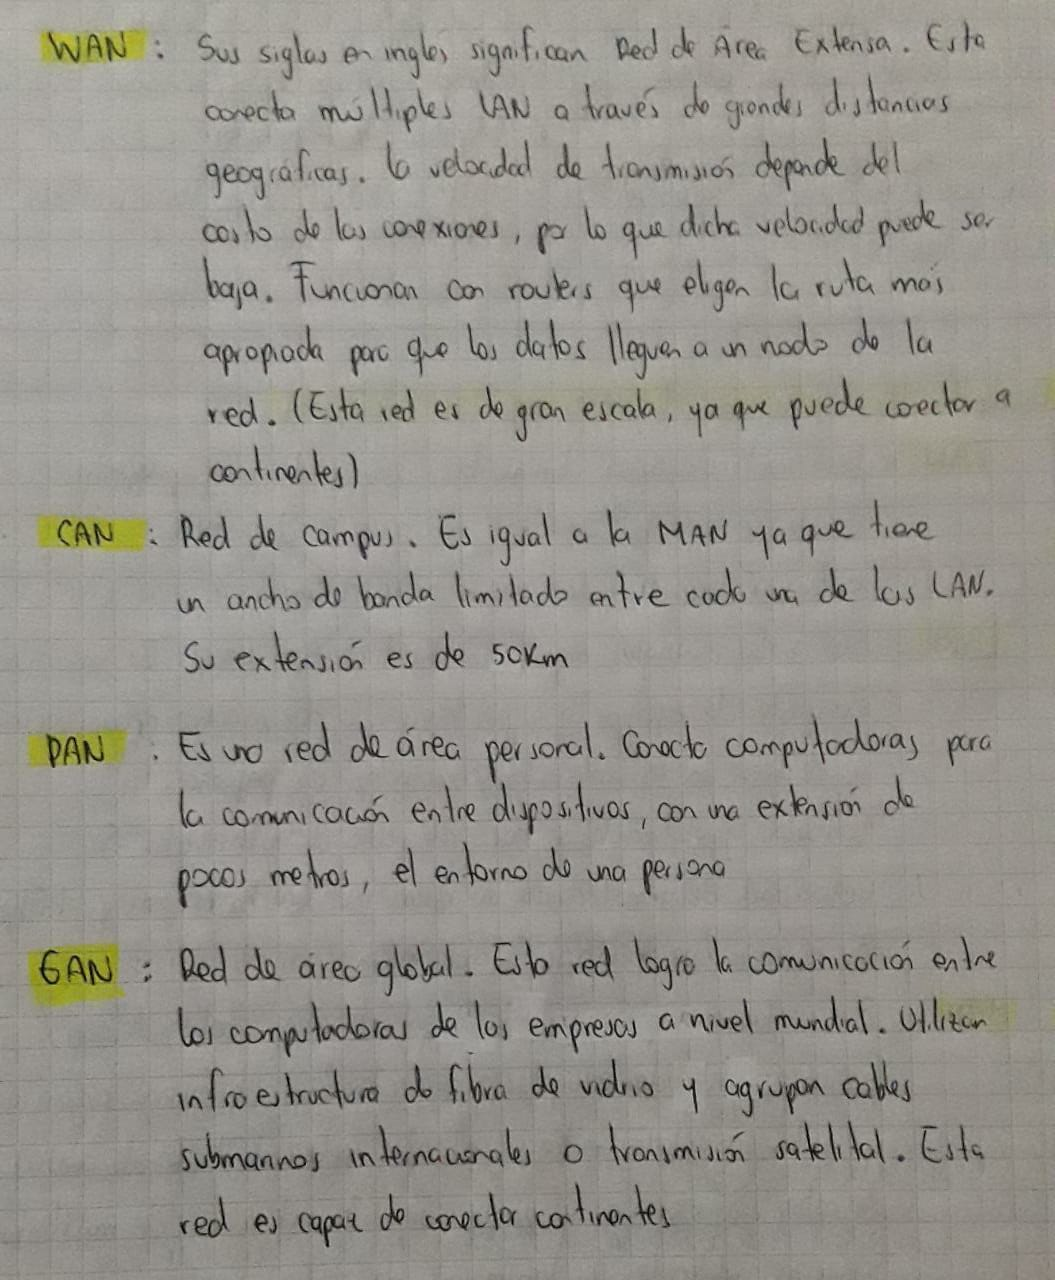 WAN : Sus siglas en ingles significan Red de Área Extensa. Esta
conecta múltiples LAN a través de grandes distancias
geográficas. La velocidad de transmisión depende del
costo de las conexiones, por lo que dicha velocidad puede ser
baja. Funcionan con routers que eligen la ruta más
apropiada para que los datos lleguen a un nodo de la
red. (Esta red es de gran escala, ya que puede conectar a
continentes)
CAN : Red de campus. Es igual a la MAN ya que tiene
un ancho de banda limitado entre cada una de las LAN.
Su extensión es de 50Km
PAN : Es una red de área personal. Conecta computadoras para
la comunicación entre dispositivos, con una extensión de
pocos metros, el entorno de una persona
GAN : Red de área global. Esta red logra la comunicación entre
las computadoras de las empresas a nivel mundial. Utilizan
infraestructura de fibra de vidrio y agrupan cables
submarinos internacionales o transmisión satelital. Esta
red es capaz de conectar continentes